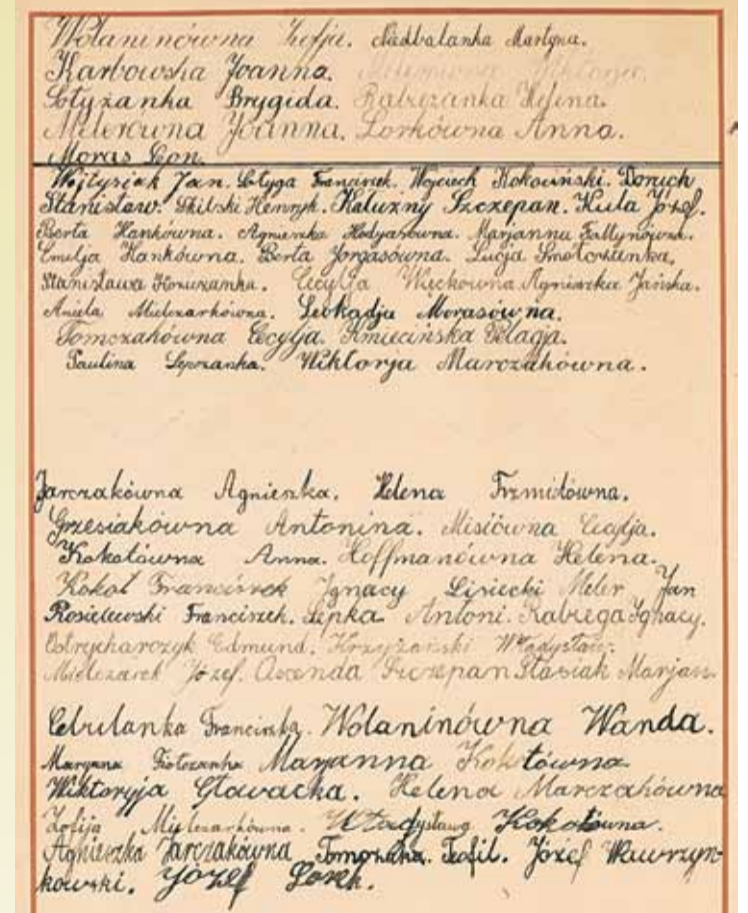 Wolaninówna Zofja. Nadbalanka Martyna.
Karbowska Joanna. Melerówna Wiktorja.
Łotyżanka Brygida. Kabzezanka Helena.
Melerówna Joanna. Lorkówna Anna.
Moras Leon.
Wojtysiak Jan. Łotyga Franciszek. Wojciech Kokociński.
Stanisław. Skibski Henryk. Kałużny Szczepan. Kula Józef.
Berta Hankówna. Agnieszka Marjanna
Emelja Hankówna. Berta Jorgasówna. Łucja
Stanisława Cecylja Więckowna Agnieszka Jańska.
Aniela Mielczarkówna. Leokadja Morasówna.
Tomczakówna Cecylja. Kmiecińska Pelagja.
Paulina Wiktorja Marczakówna.
Jarczakówna Agnieszka. Helena Frzmidówna.
Grzesiakówna Antonina. Misiówna Cecylja.
Kokotówna Anna. Hoffmanówna Helena.
Kokot Franciszek Ignacy Lisiecki Meler Jan
Rosielewski Franciszek. Lepka Antoni. Kabzega Ignacy.
Ostrycharczyk Edmund. Krzyżański Władysław.
Mielczarek Józef. Owenda Szczepan Stasiak Marjan.
Cebulanka Franciszka. Wolaninówna Wanda.
Maryana Maryanna Kokotówna
Wiktoryja Głowacka. Helena Marczakówna
Zofija Mielczarkówna. Kokotówna.
Agnieszka Jarczakówna Teofil. Józef Wawrzyn-
kowski. Józef Lorek.